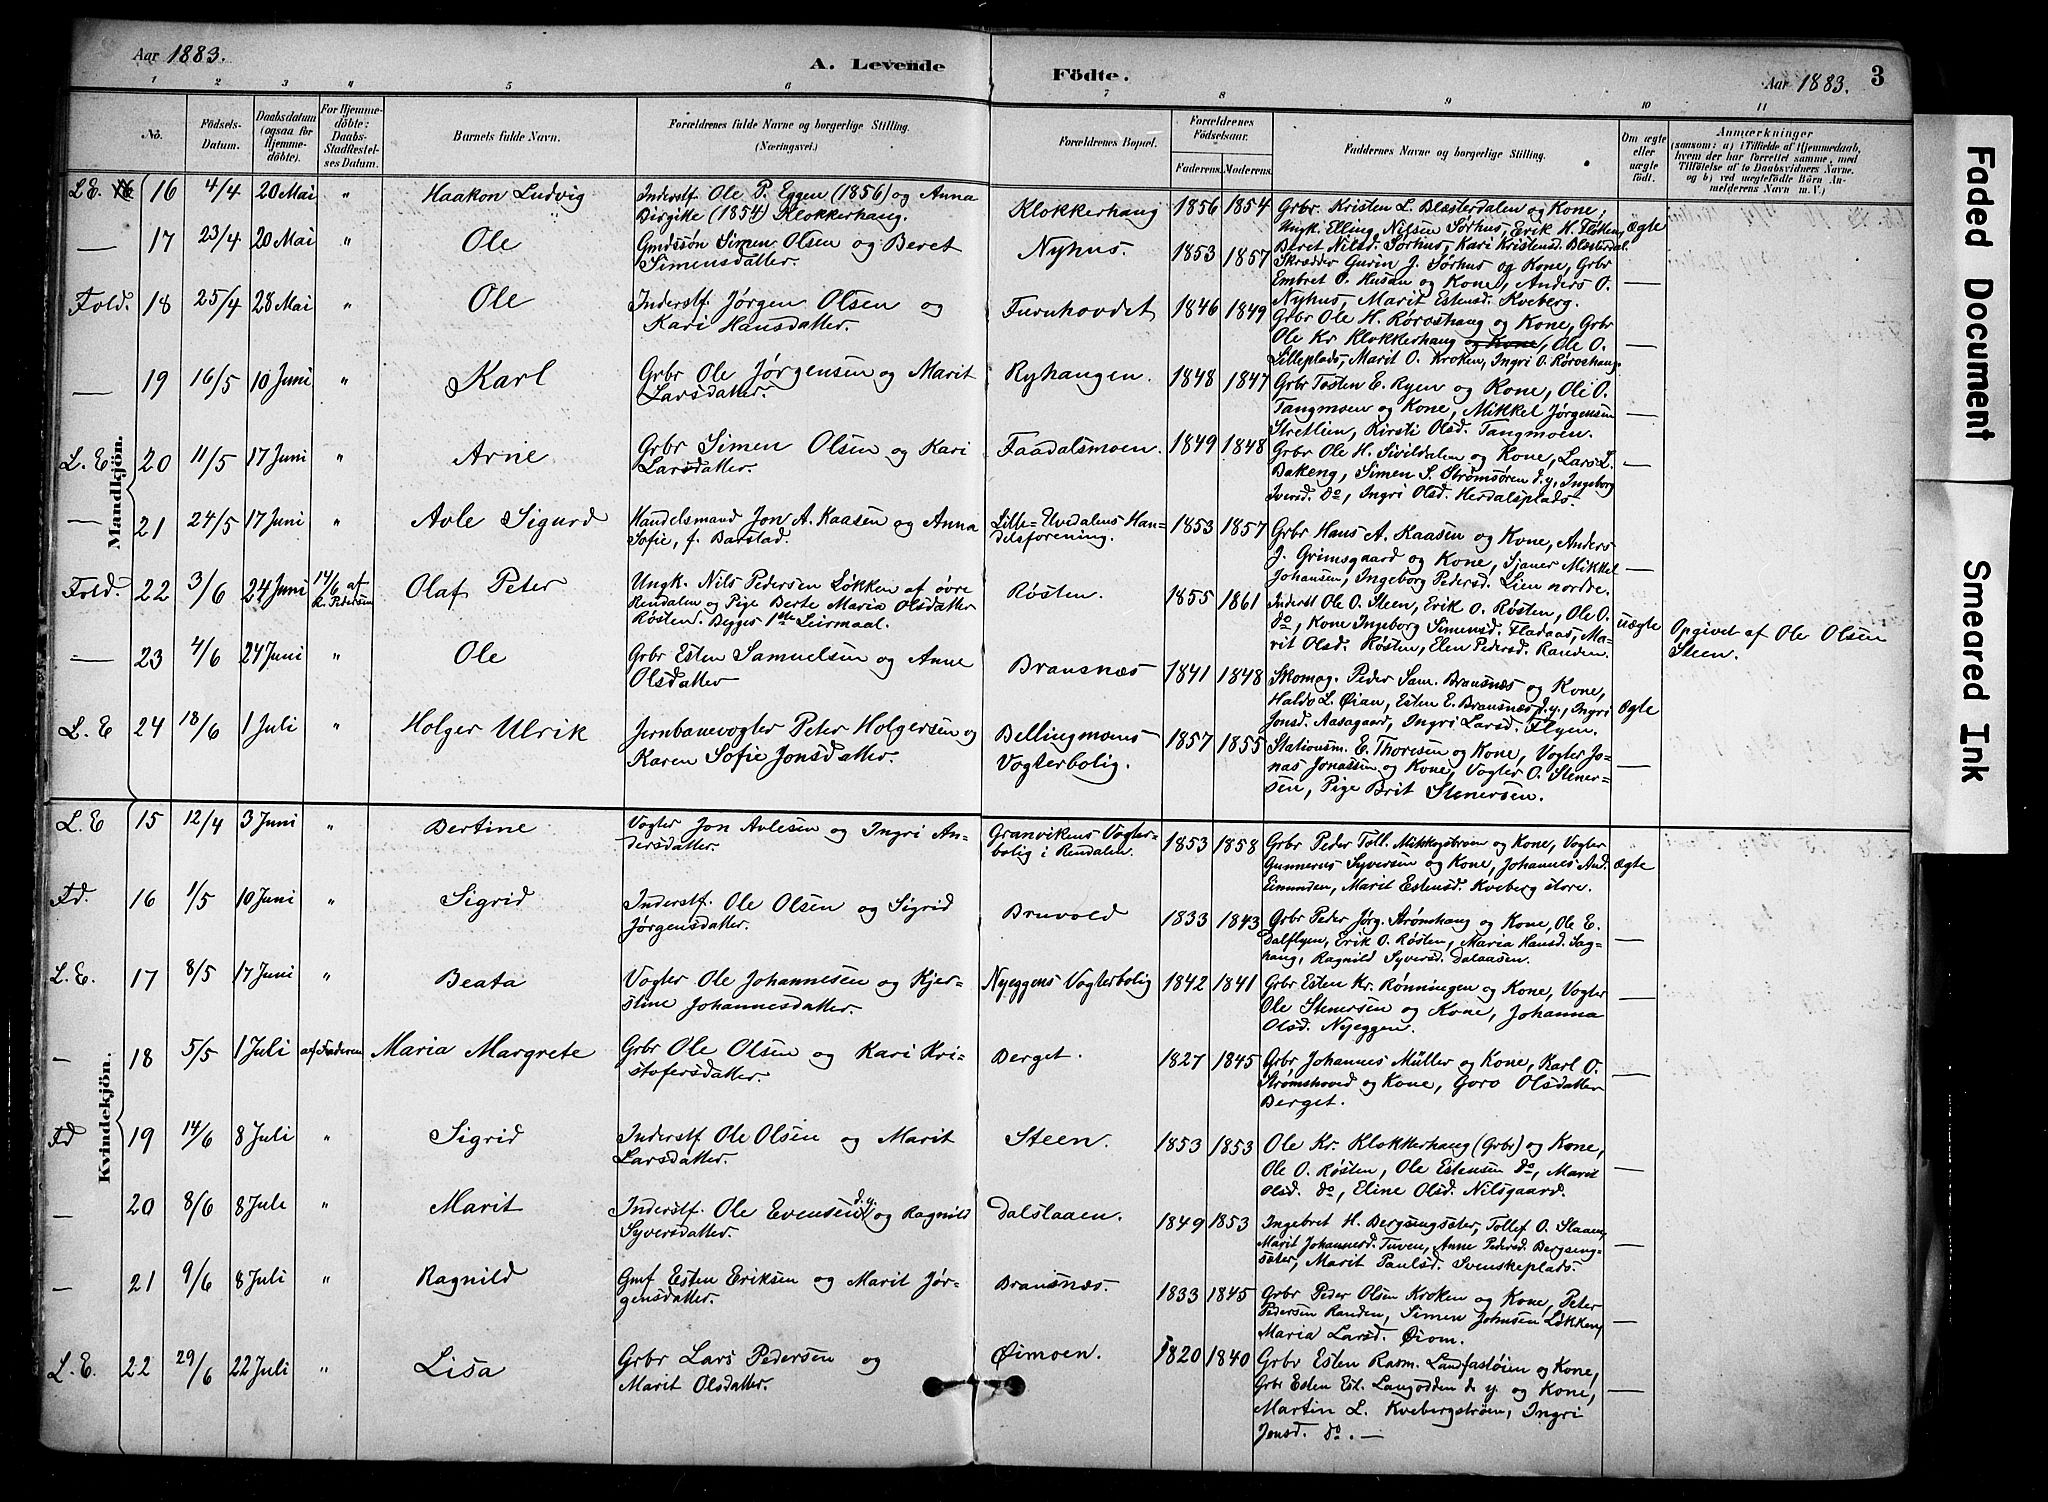 Aar 1883.
A. Levende Födte.
Aar 1883. 3
1 2 3 4 5 6 7 8 9 10 11
No. Födsels-Datum. Daabsdatum (ogsaa for Hjemmedöbte). For Hjemmedöbte: Daabs-Stadfæstelses Datum. Barnets fulde Navn. Forældrenes fulde Navne og borgerlige Stilling. (Næringsvei.) Forældrenes Bopæl. Forældrenes Födselsaar. Faderens. Moderens. Faddernes Navne og borgerlige Stilling. Om ægte eller uægte födt. Anmærkninger (saasom: a) i Tilfælde af Hjemmedaab, hvem der har forrettet samme, med Tilföielse af to Daabsvidners Navne, og b) ved uægtefödte Börn Anmelderens Navn m. V.)
Mandkjön.
L.E. 16 4/4 20 Mai " Haakon Ludvig Inderstf. Ole P. Eggen (1856) og Anna Birgitte (1854) Klokkerhaug. Klokkerhaug 1856 1854 Grbr. Kristen L. Blæsterdalen og Kone, Ungk. Elling Nilsen Sørhus, Erik H. Fløtten, Beret Nilsd. Sørhus, Kari Kristensd. Blæsterdal. ægte
— 17 23/4 20 Mai " Ole Gmdssøn Simen Olsen og Beret Simensdatter. Nyhus. 1853 1857 Skrædder Gurin J. Sørhus og Kone, Grbr Embret O. Husan og Kone, Anders O. Nyhus, Marit Estensd. Kveberg. —
Fold. 18 25/4 28 Mai " Ole Inderstf. Jørgen Olsen og Kari Hansdatter. Furuhovdet 1846 1849 Grbr Ole H. Røroshaug og Kone, Grbr Ole Kr Klokkerhaug og Kone, Ole O. Lilleplads, Marit O. Kroken, Ingri O. Røroshaug. —
— 19 16/5 10 Juni " Karl Grbr Ole Jørgensen og Marit Larsdatter. Ryhaugen. 1848 1847 Grbr Tosten E. Ryen og Kone, Ole O. Tangmoen og Kone, Mikkel Jørgensen Stretlien, Kirsti Olsd. Tangmoen. —
L. E. 20 11/5 17 Juni " Arne Grbr Simen Olsen og Kari Larsdatter. Faadalsmoen. 1849 1848 Grbr Ole H. Sivildalen og Kone, Lars L. Bakeng, Simen S. Strømsøren d.y, Ingeborg Iversd. do, Ingri Olsd. Herdalsplads. —
— 21 24/5 17 Juni " Avle Sigurd Handelsmand Jon A. Kaasen og Anna Sofie, f. Barstad. Lille-Elvedalens Handelsforening. 1853 1857 Grbr Hans A. Kaasen og Kone, Anders J. Grimsgaard og Kone, Sjauer Mikkel Johansen, Ingeborg Pedersd. Lien nordre. —
Fold. 22 3/6 24 Juni 14/6 af K. Pedersen Olaf Peter Ungk. Nils Pedersen Løkken af øvre Rendalen og Pige Berte Maria Olsdatter Røsten. Begges 1ste Leirmaal. Røsten. 1855 1861 Inderst Ole O. Steen, Erik O. Røsten, Ole O. do, Kone Ingeborg Simensd. Fladaas, Marit Olsd. Røsten, Elen Pedersd. Randen. uægte Opgivet af Ole Olsen Steen.
— 23 4/6 24 Juni " Ole Grbr Esten Samuelsen og Anne Olsdatter Bransnæs 1841 1848 Skomag. Peder Sam. Bransnæs og Kone, Haldo L. Øian, Esten E. Bransnæs d.y., Ingri Jonsd. Aasagaard, Ingri Larsd. Flyen. ægte
L. E 24 18/6 1 Juli " Holger Ulrik Jernbanevogter Peter Holgersen og Karen Sofie Jonsdatter. Bellingmoens Vogterbolig. 1857 1855 Stationsm. E. Thoresen og Kone, Vogter Jonas Jonassen og Kone, Vogter O. Stenersen, Pige Brit Stenersen. —
Kvindekjön.
L. E 15 12/4 3 Juni " Bertine Vogter Jon Avlesen og Ingri Andersdatter. Granvikens Vogterbolig i Rendalen. 1853 1858 Grbr Peder Toll. Mikkogsbroen og Kone, Vogter Gunnerus Syversen og Kone, Johannes And. Eimunden, Marit Estensd. Kveberg store. ægte
Fd. 16 1/5 10 Juni " Sigrid Inderstf. Ole Olsen og Sigrid Jørgensdatter. Bruvold 1833 1843 Grbr Peder Jørg. Strømhaug og Kone, Ole E. Dalflyen, Erik O. Røsten, Maria Hansd. Saghaug, Ragnild Syversd. Dalaasen. —
L. E. 17 8/5 17 Juni " Beata Vogter Ole Johannesen og Kjerstine Johannesdatter. Nyeggens Vogterbolig 1842 1841 Grbr Esten Kr. Rønningen og Kone, Vogter Ole Stenersen og Kone, Johanna Olsd. Nyeggen. —
— 18 5/5 1 Juli af Faderen Maria Margrete Grbr Ole Olsen og Kari Kristofersdatter. Berget. 1827 1845 Grbr, Johannes Müller og Kone, Karl O. Strømshoved og Kone, Goro Olsdatter Berget. —
Fd 19 14/6 8 Juli " Sigrid Inderstf Ole Olsen og Marit Larsdatter. Steen. 1853 1853 Ole Kr. Klokkerhaug (Grbr) og Kone, Ole O. Røsten, Ole Estensen do, Marit Olsd. do, Eline Olsd. Nilsgaard. —
— 20 8/6 8 Juli " Marit Inderstf. Ole Evensen d.y. og Ragnild Syversdatter. Dalslaaen. 1849 1853 Ingebret H. Bergsengsæter, Tollef O. Slaaen, Marit Johannesd. Tuven, Anne Pedersd. Bergsengsæter, Marit Paulsd. Svenskeplads. —
— 21 9/6 8 Juli " Ragnild Gmf Esten Eriksen og Marit Jørgensdatter. Bransnæs. 1833 1845 Grbr Peder Olsen Kroken og Kone, Peter Pedersen Randen, Simen Johnsen Løkken, Maria Larsd. Øiom. —
L. E. 22 29/6 22 Juli " Lisa Grbr Lars Pedersen og Marit Olsdatter. Øimoen. 1820 1840 Grbr Esten Rasm. Landfastøien og Kone, Grbr Esten Est. Langodden d y. og Kone, Martin L. Kvebergstrøen, Ingri Jonsd. do. —
Faded Document
Smeared Ink